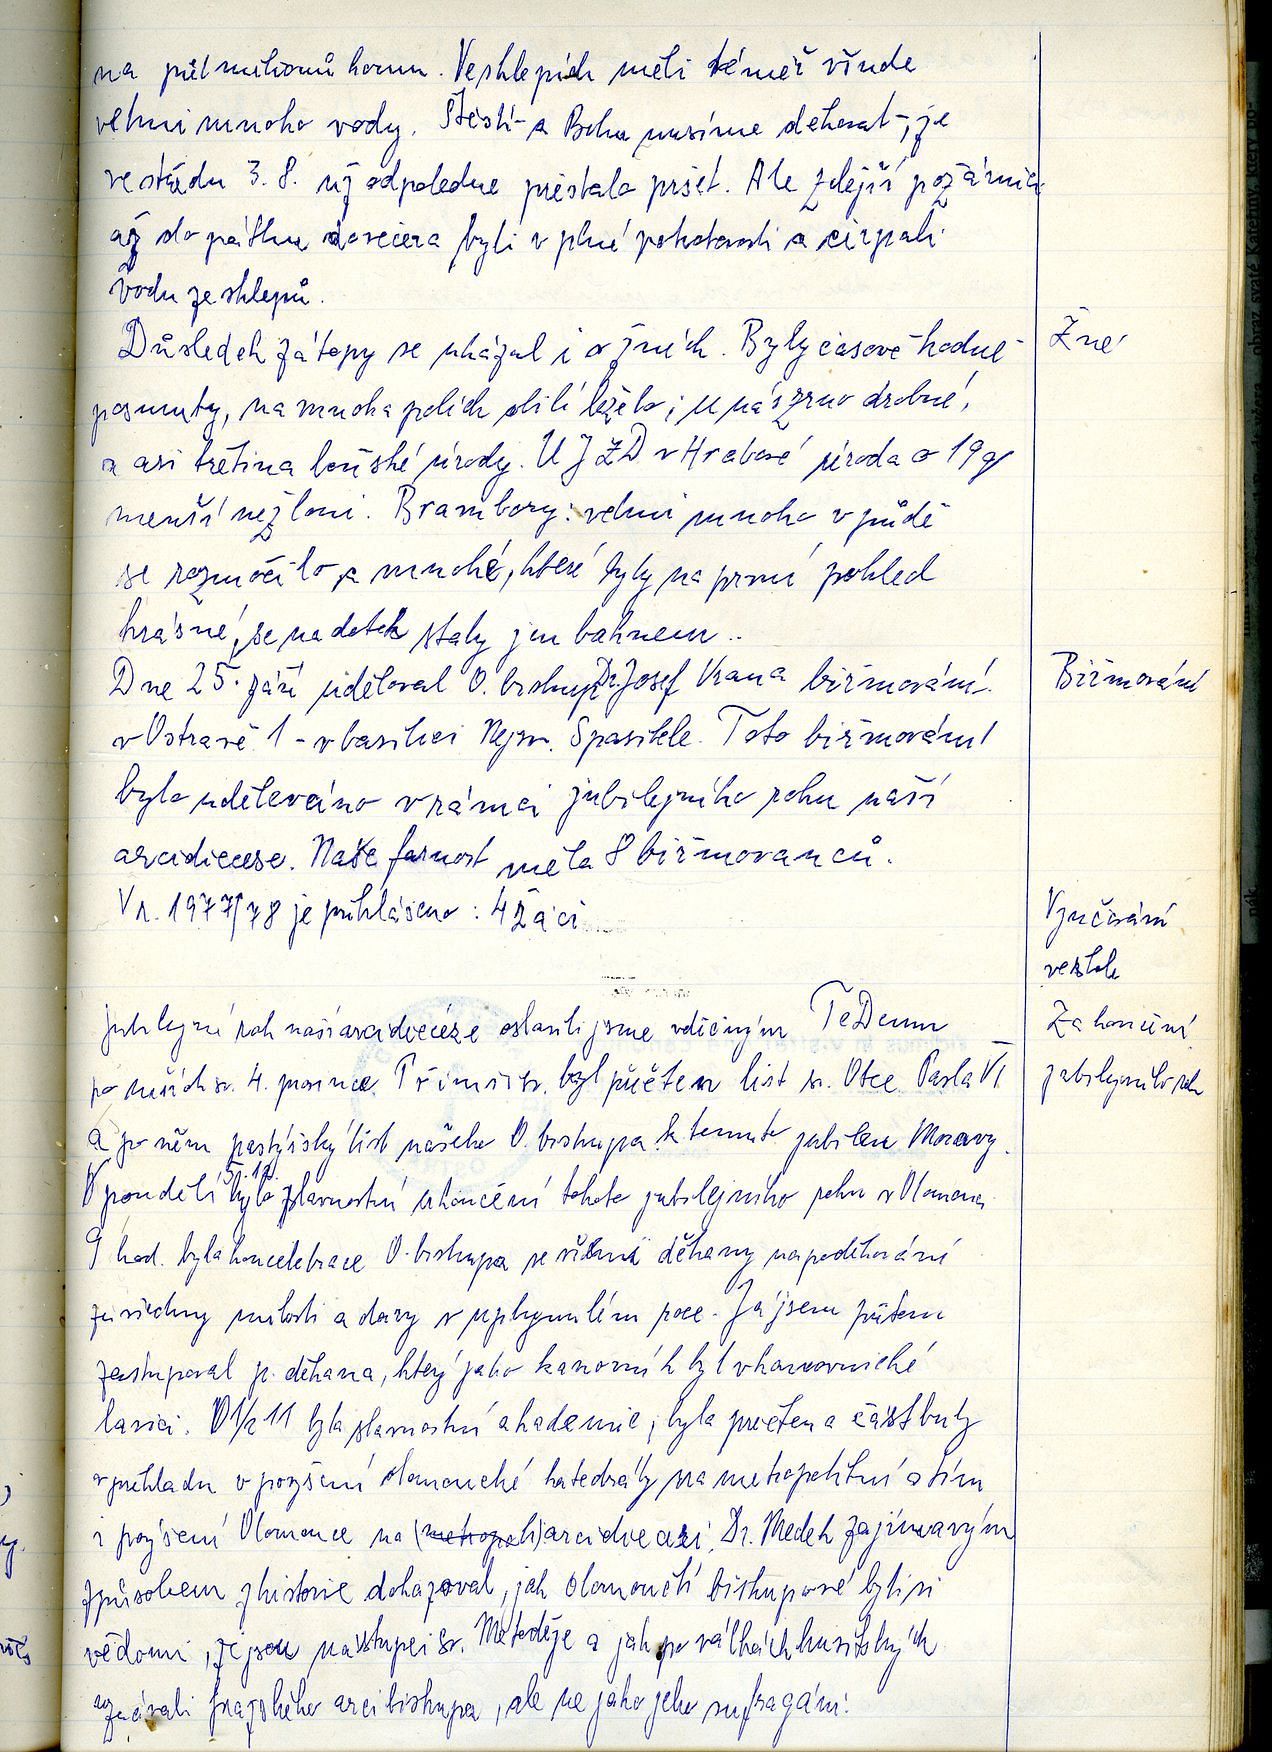 na půl milionů korun. Ve sklepích měli téměř všude
velmi mnoho vody. Štěstí - a Bohu musíme děkovat -, že
ve středu 3. 8. už odpoledne přestalo pršet. Ale zdejší požárníci
až do pátku dovečera byli v plné pohotovosti a čirpali
vodu ze sklepů.
Důsledek zátopy se ukázal i o žních. Byly časově hodně
Žně
posunuty, na mnoha polích obilí leželo; u nás zrno drobné,
a asi třetina loňské úrody. U JZD v Hrabové úroda o 19 q
menší než loni. Brambory: velmi mnoho v půdě
se rozmočilo a mnohé, které byly na první pohled
krásné, se na dotek staly jen bahnem..
Dne 25. září uděloval O. biskup Dr. Josef Vrana biřmování
Biřmování
v Ostravě 1 - v basilici Nejsv. Spasitele. Toto biřmování
bylo udělováno v rámci jubilejního roku naší
arcidiecese. Naše farnost měla 8 biřmovanců.
V r. 1977/78 je přihlášeno: 4 žáci
Vyučování
ve škole
Jubilejní rok naší arcidiecéze oslavili jsme vděčným Te Deum
Zakončení
po mších sv. 4. prosince. Při mši sv. byl přečten list sv. Otce Pavla VI
jubilejního roku
a po něm pastýřský list našeho O. biskupa k tomuto jubileu Moravy.
V pondělí 5. 12. bylo slavnostní ukončení tohoto jubilejního roku v Olomouci.
9 hod. byla koncelebrace O. biskupa se všemi děkany na poděkování
za všechny milosti a dary v uplynulém roce. Já jsem přitom
zastupoval p. děkana, který jako kanovník byl v kanovnické
lavici. O 1/2 11 byla slavnostní akademie, byla přečtena část buly
v překladu o povýšení olomoucké katedrály na metropolitní a tím
i povýšení Olomouce na (metropoli) arcidiecézi. Dr. Medek zajímavým
způsobem z historie dokazoval, jak olomoučtí biskupové byli si
vědomi, že jsou nástupci sv. Metoděje a jak po válkách husitských
uznávali pražského arcibiskupa, ale ne jako jeho sufragáni.